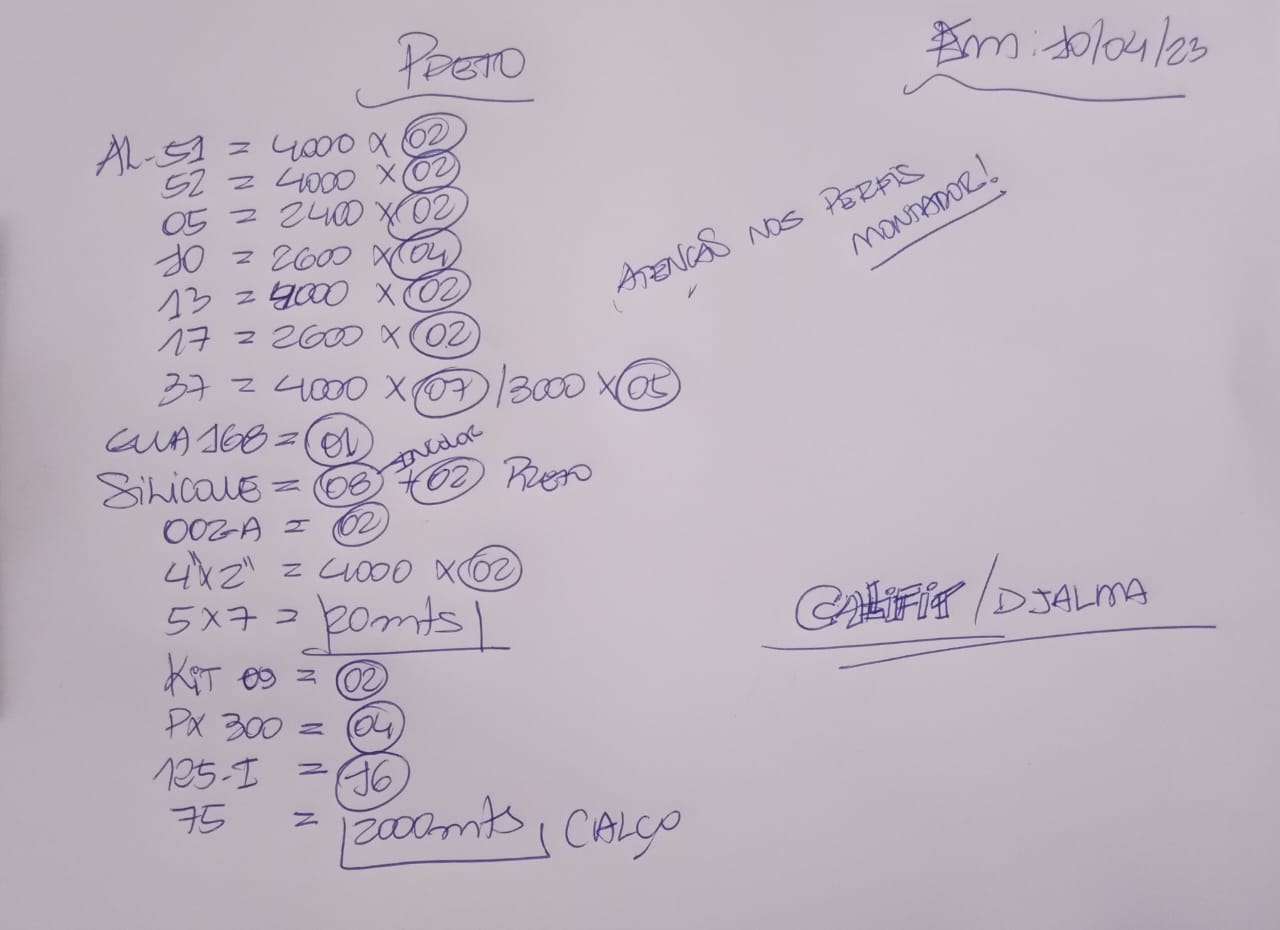 PRETO
Em: 10/04/23
AL-51 = 4000 x 02
52 = 4000 x 02
05 = 2400 x 02
10 = 2600 x 04
13 = 4000 x 02
17 = 2600 x 02
37 = 4000 x 07 / 3000 x 05
ATENÇÃO NOS PERFIS
MONTADOR!
GUA 168 = 01
SILICONE = 08 INCOLOR + 02 PRETO
002-A = 02
4"x2" = 4000 x 02
5x7 = 20mts
CALIFIT / DJALMA
KiT 09 = 02
PX 300 = 04
125-I = 16
75 = 2000mts CALÇO